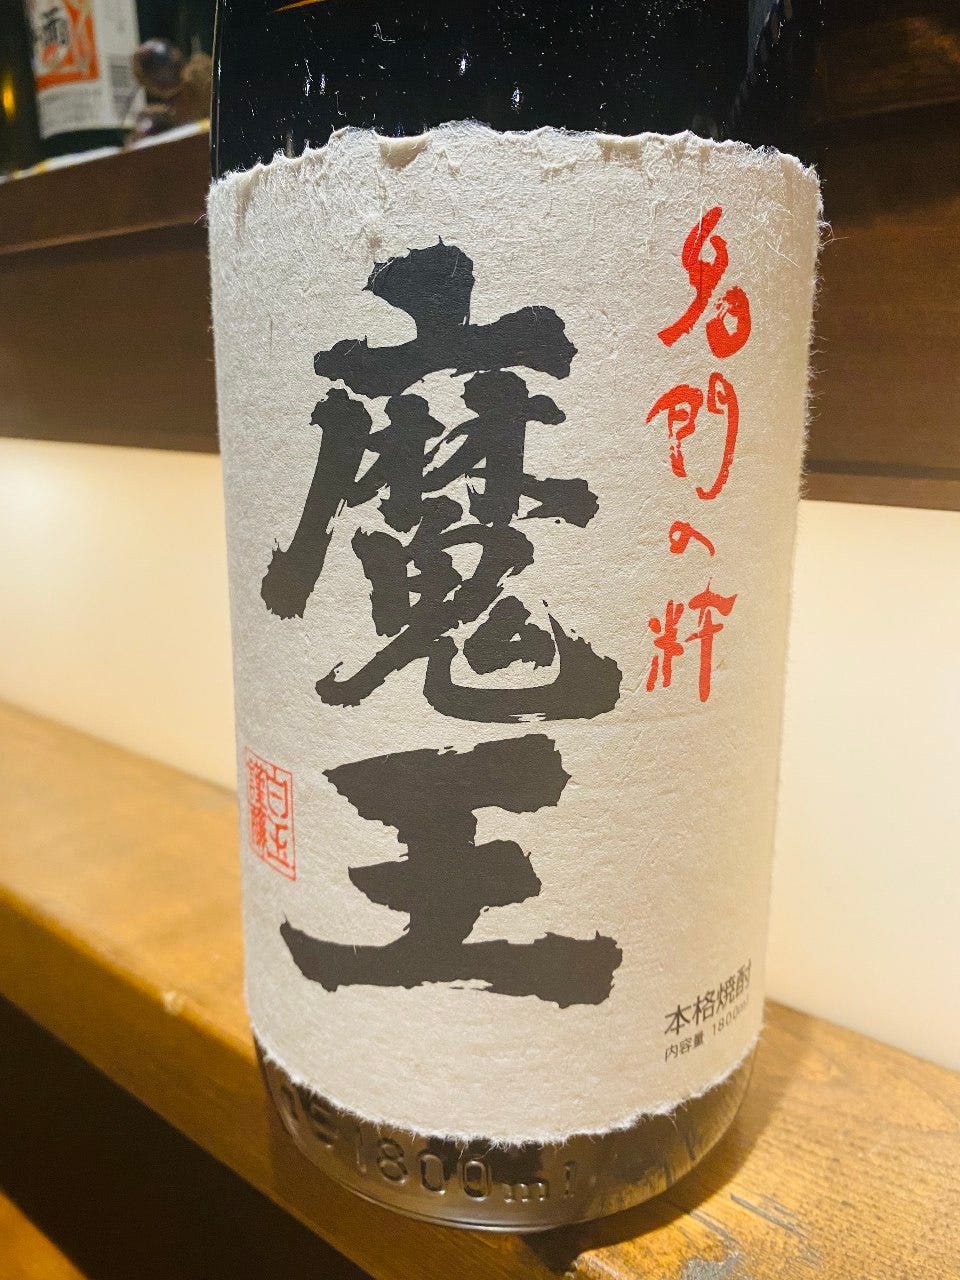 名門の粋
魔王
本格焼酎
内容量 1800ml
1800ml